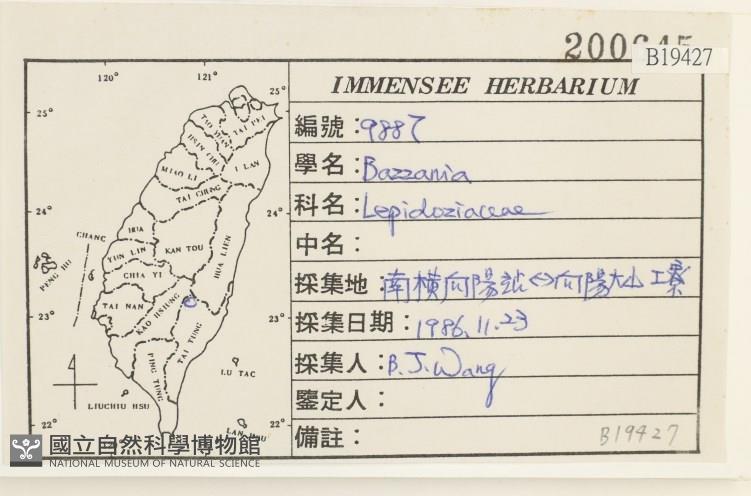 B19427
IMMENSEE HERBARIUM
編號：9887
學名：Bazzania
科名：Lepidoziaceae
中名：
採集地：南橫向陽站<->向陽大山工寮
採集日期：1986.11.23
採集人：B.J.Wang
鑒定人：
備註：
B19427
120° 121°
25° 25°
TAI PEI
I LAN
MIAO LI
TAI CHUNG
24° 24°
CHANG HUA
YUN LIN
KAN TOU
HUA LIEN
PENG HU
CHIA YI
TAI NAN
KAO HSIUNG
23° 23°
TAI TUNG
PING TUNG
LU TAO
LIUCHIU HSU
22° 22°
LAN HSU
國立自然科學博物館
NATIONAL MUSEUM OF NATURAL SCIENCE